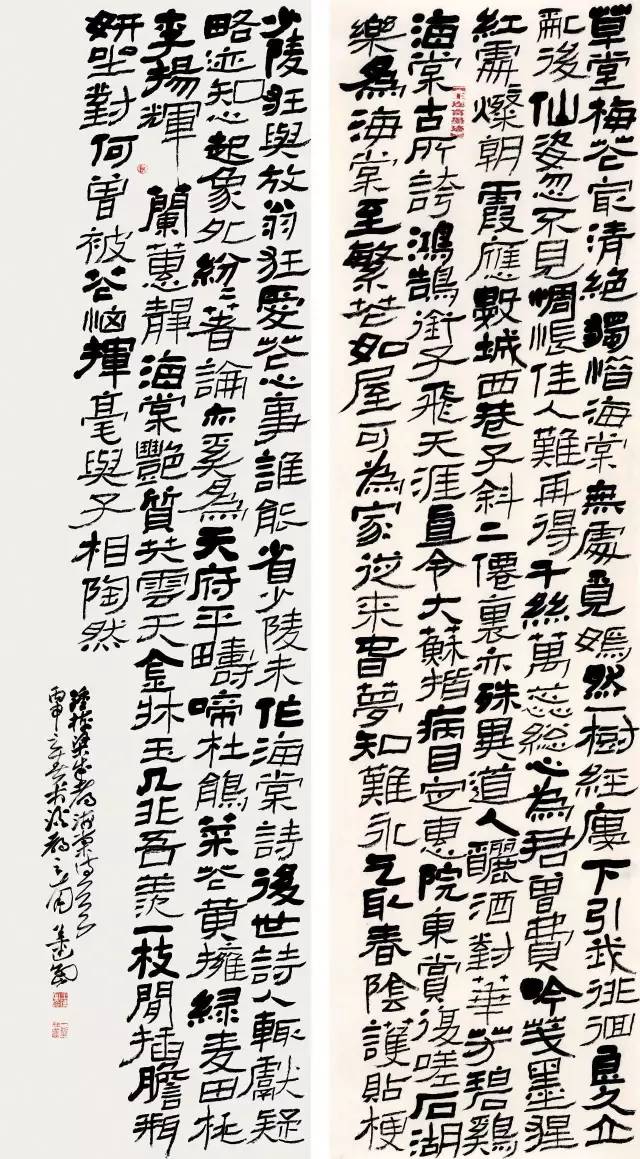 草堂梅花最清絶獨惜海棠無處覓嫣然一樹經廈下引我徘徊良久立
亂後仙姿忽不見惆悵佳人難再得千絲萬蕊総心為君曽費吟箋墨猩
紅燦朝霞應數城西巷子斜二僊裏亦殊異道人釃酒對華芳碧鷄
海棠古所誇鴻鵠銜子飛天涯直令大蘇揩病目定惠院東賞復嗟石湖
樂為海棠至繁花如屋可為家從来昔夢知難永乞取春陰護貼梗
少陵狂與放翁狂愛花心事誰能省少陵未作海棠詩後世詩人輒獻疑
略迹知心起象外紛々著論亦奚為天府平疇啼杜鵑菜花黃擁緑麦田桃
李揚輝蘭蕙静海棠艷質共雲天金牀玉几非吾羨一枝閒插膽瓶
妍坐對何曽被花惱揮毫與子相陶然
丙申